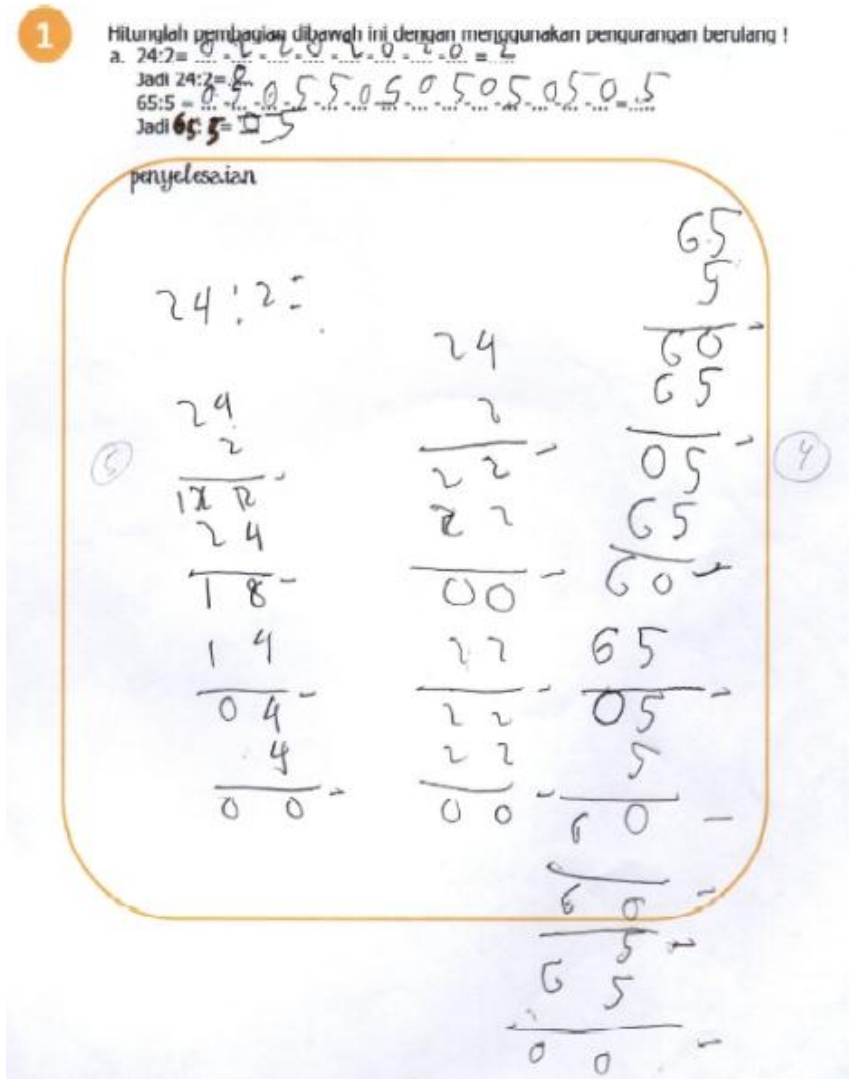 1
Hitunglah pembagian dibawah ini dengan menggunakan pengurangan berulang !
a. 24:2= 0 - 2 - 2 - 0 - 2 - 0 - 2 - 0 = 2
Jadi 24:2=
65:5 = 0 5 0 5 5 0 5 0 5 0 5 0 5 0 = 5
Jadi 65: 5= 5
penyelesaian
24:2=
24
2
-
24
18 -
14
04 -
4
00 -
24
2
22 -
22
00 -
22
22 -
22
00 -
65
5
60 -
65
05 -
65
60 -
65
05 -
5
60 -
-
5 -
65
00 -
5
4